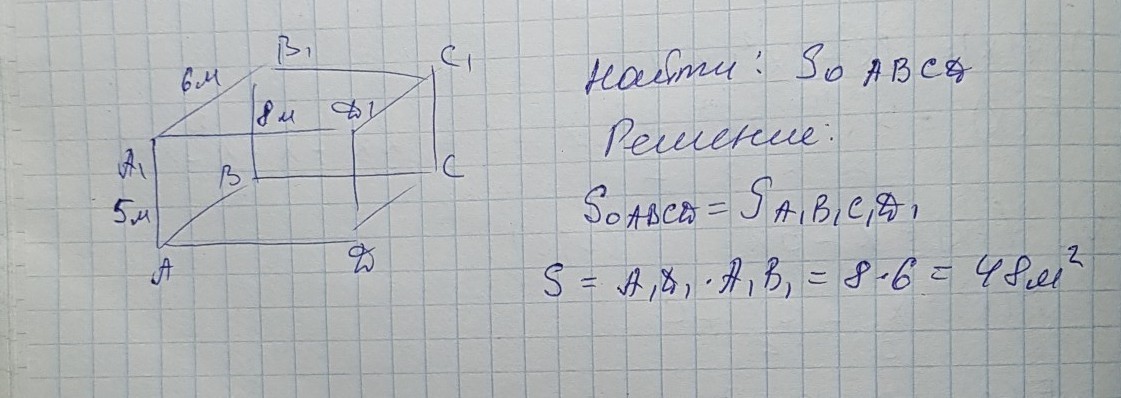 B₁
C₁
6м
8м
Д₁
A₁
B
C
5м
A
Д
Найти: S₀ ABCД
Решение:
S₀ABCД = S A₁B₁C₁Д₁
S = A₁Д₁ · A₁B₁ = 8 · 6 = 48м²